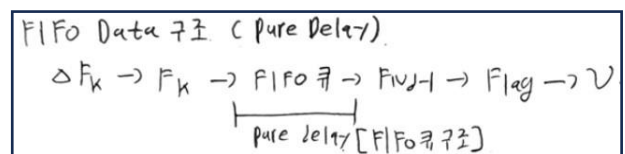 FIFO Data 구조 (Pure Delay)
△Fk → Fk → FIFO 큐 → FNd-1 → Flag → V
pure delay [FIFO큐구조]